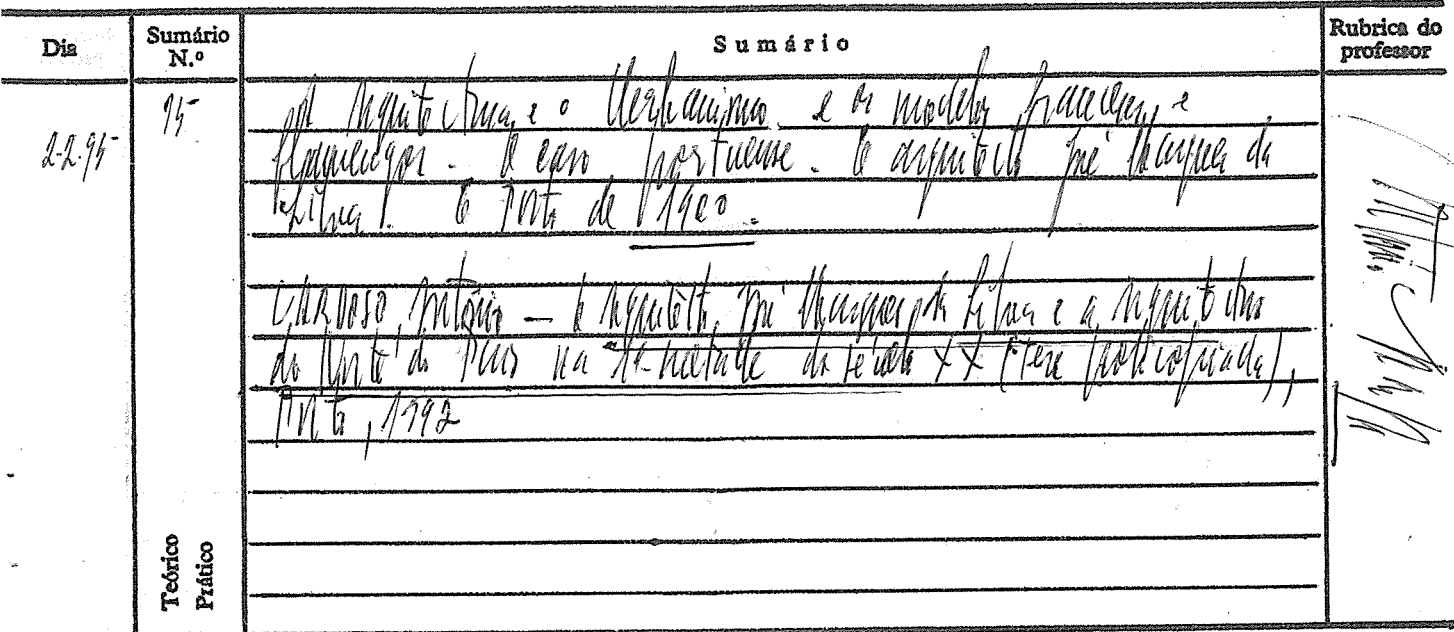 Dia
Sumário N.º
Sumário
Rubrica do professor
2.2.95
15
A Arquitectura e o Urbanismo e os modelos franceses e
. O caso portuense. O arquitecto José Marques da
Silva. O Porto de 1900.
CARDOSO, António – O Arquitecto José Marques da Silva e a Arquitectura
do Norte do País na 1ª metade do século XX (tese policopiada),
Porto, 1992
Teórico
Prático